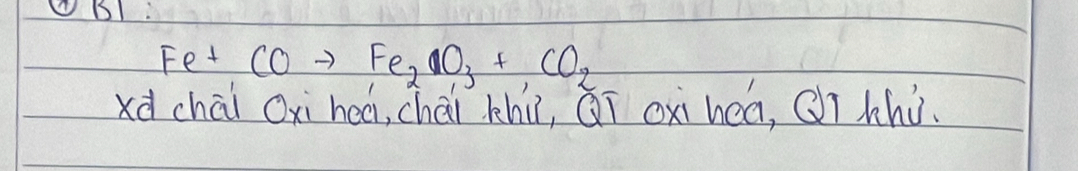 ④ B1:
Fe + CO → Fe₂O₃ + CO₂
Xđ chất Oxi hoá, chất khử, QT oxi hoá, QT khử.